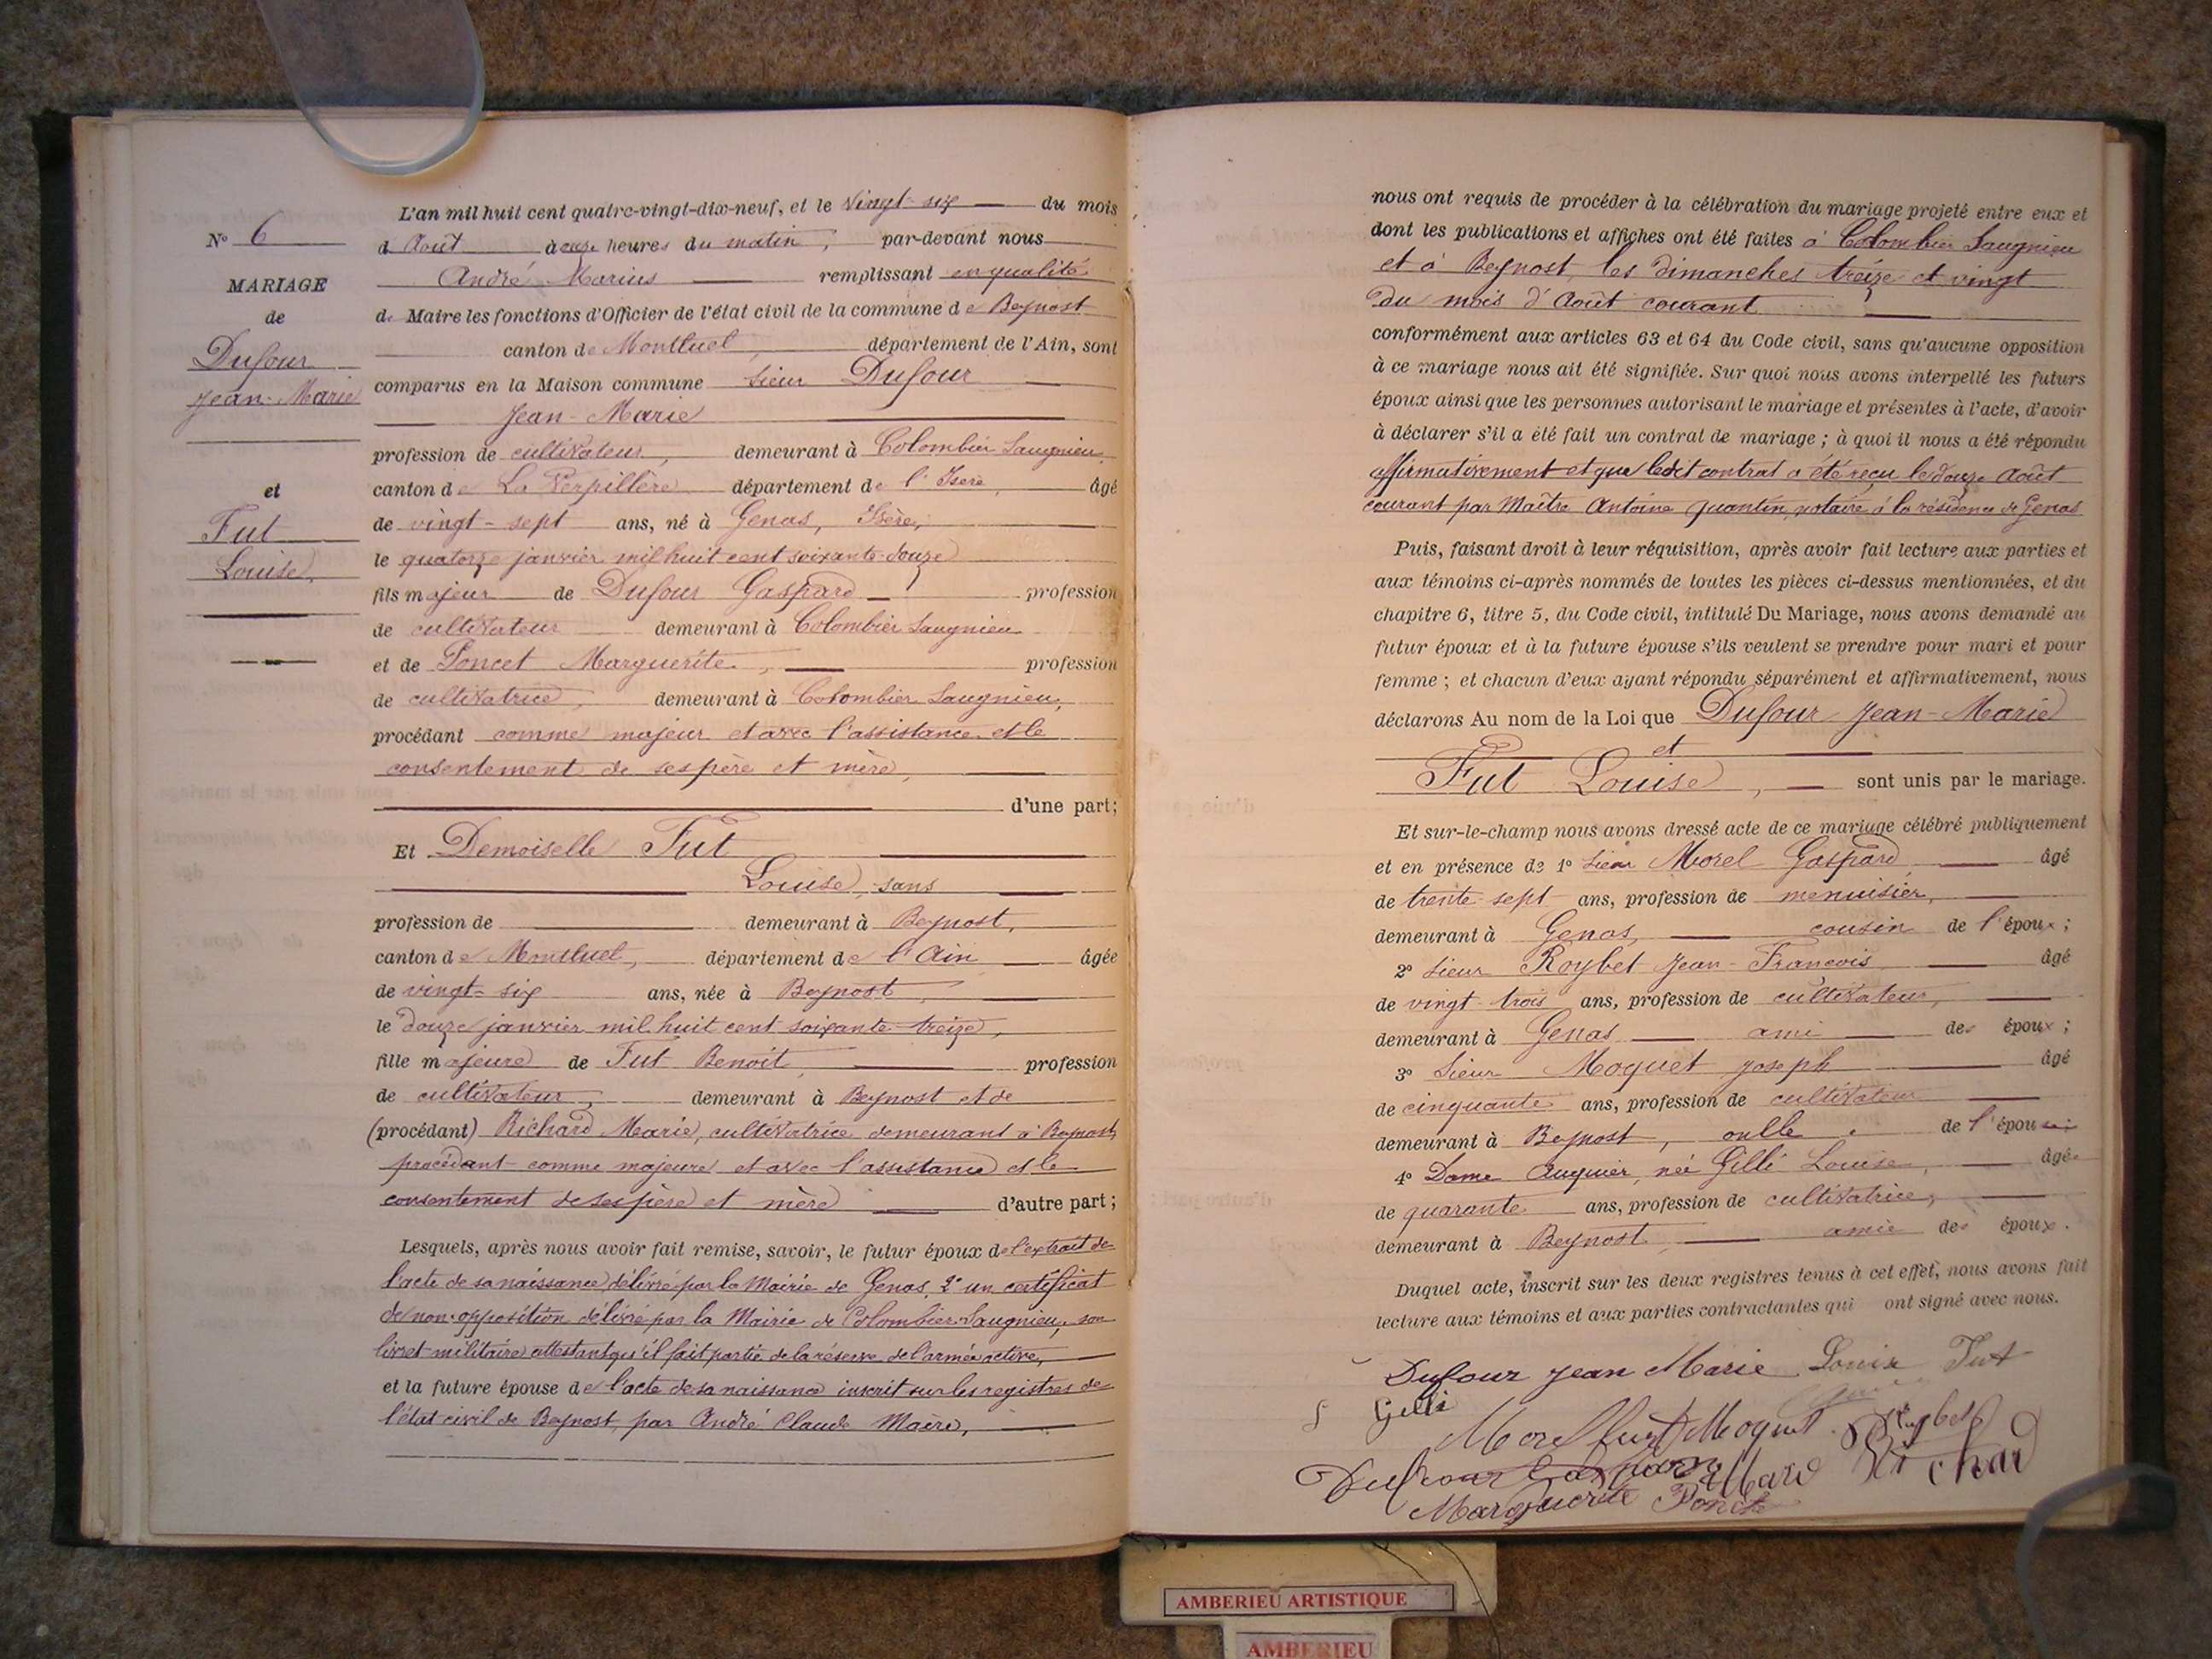 N° 6
MARIAGE
de
Dufour
Jean-Marie
et
Fut
Louise,
L'an mil huit cent quatre-vingt-dix-neuf, et le vingt-six du mois
d Août à onze heures du matin, par-devant nous
André Marius remplissant en qualité
de Maire les fonctions d'Officier de l'état civil de la commune de Beynost
canton de Montluel, département de l'Ain, sont
comparus en la Maison commune sieur Dufour
Jean-Marie
profession de cultivateur, demeurant à Colombier Saugnieu,
canton de La Verpillère département de l'Isère, âgé
de vingt-sept ans, né à Genas, Isère,
le quatorze janvier mil huit cent soixante-douze
fils majeur de Dufour Gaspard profession
de cultivateur demeurant à Colombier Saugnieu
et de Poncet Marguerite, profession
de cultivatrice, demeurant à Colombier Saugnieu,
procédant comme majeur et avec l'assistance et le
consentement de ses père et mère,
d'une part;
Et Demoiselle Fut
Louise, sans
profession de demeurant à Beynost,
canton de Montluel, département de l'Ain âgée
de vingt-six ans, née à Beynost,
le douze janvier mil huit cent soixante-treize,
fille majeure de Fut Benoit, profession
de cultivateur, demeurant à Beynost et de
(procédant) Richard Marie, cultivatrice demeurant à Beynost,
procédant comme majeure et avec l'assistance et le
consentement de ses père et mère d'autre part;
Lesquels, après nous avoir fait remise, savoir, le futur époux de l'extrait de
l'acte de sa naissance, délivré par la Mairie de Genas, 2° un certificat
de non-opposition délivré par la Mairie de Colombier-Saugnieu, son
livret militaire attestant qu'il fait partie de la réserve de l'armée active,
et la future épouse de l'acte de sa naissance inscrit sur les registres de
l'état civil de Beynost, par André Claude Maire,
nous ont requis de procéder à la célébration du mariage projeté entre eux et
dont les publications et affiches ont été faites à Colombier Saugnieu
et à Beynost, les dimanches treize et vingt
du mois d'Août courant
conformément aux articles 63 et 64 du Code civil, sans qu'aucune opposition
à ce mariage nous ait été signifiée. Sur quoi nous avons interpellé les futurs
époux ainsi que les personnes autorisant le mariage et présentes à l'acte, d'avoir
à déclarer s'il a été fait un contrat de mariage; à quoi il nous a été répondu
affirmativement et que ledit contrat a été reçu le douze Août
courant par Maître Antoine Quantin, notaire à la résidence de Genas
Puis, faisant droit à leur réquisition, après avoir fait lecture aux parties et
aux témoins ci-après nommés de toutes les pièces ci-dessus mentionnées, et du
chapitre 6, titre 5, du Code civil, intitulé Du Mariage, nous avons demandé au
futur époux et à la future épouse s'ils veulent se prendre pour mari et pour
femme; et chacun d'eux ayant répondu séparément et affirmativement, nous
déclarons Au nom de la Loi que Dufour Jean-Marie
et
Fut Louise, sont unis par le mariage.
Et sur-le-champ nous avons dressé acte de ce mariage célébré publiquement
et en présence de 1° sieur Morel Gaspard, âgé
de trente-sept ans, profession de menuisier,
demeurant à Genas, cousin de l'époux;
2° sieur Roybet Jean-Francois âgé
de vingt-trois ans, profession de cultivateur,
demeurant à Genas ami des époux;
3° sieur Moquet Joseph âgé
de cinquante ans, profession de cultivateur
demeurant à Beynost, de l'épouse;
4° Dame Auquier, née Gilli Louise, âgée
de quarante ans, profession de cultivatrice,
demeurant à Beynost, amie des époux.
Duquel acte, inscrit sur les deux registres tenus à cet effet, nous avons fait
lecture aux témoins et aux parties contractantes qui ont signé avec nous.
Dufour Jean Marie Louise Fut
Gilli
Morel Fut Moquet Roybet
Dufour Gaspard Richard
Marguerite
AMBERIEU ARTISTIQUE
AMBERIEU